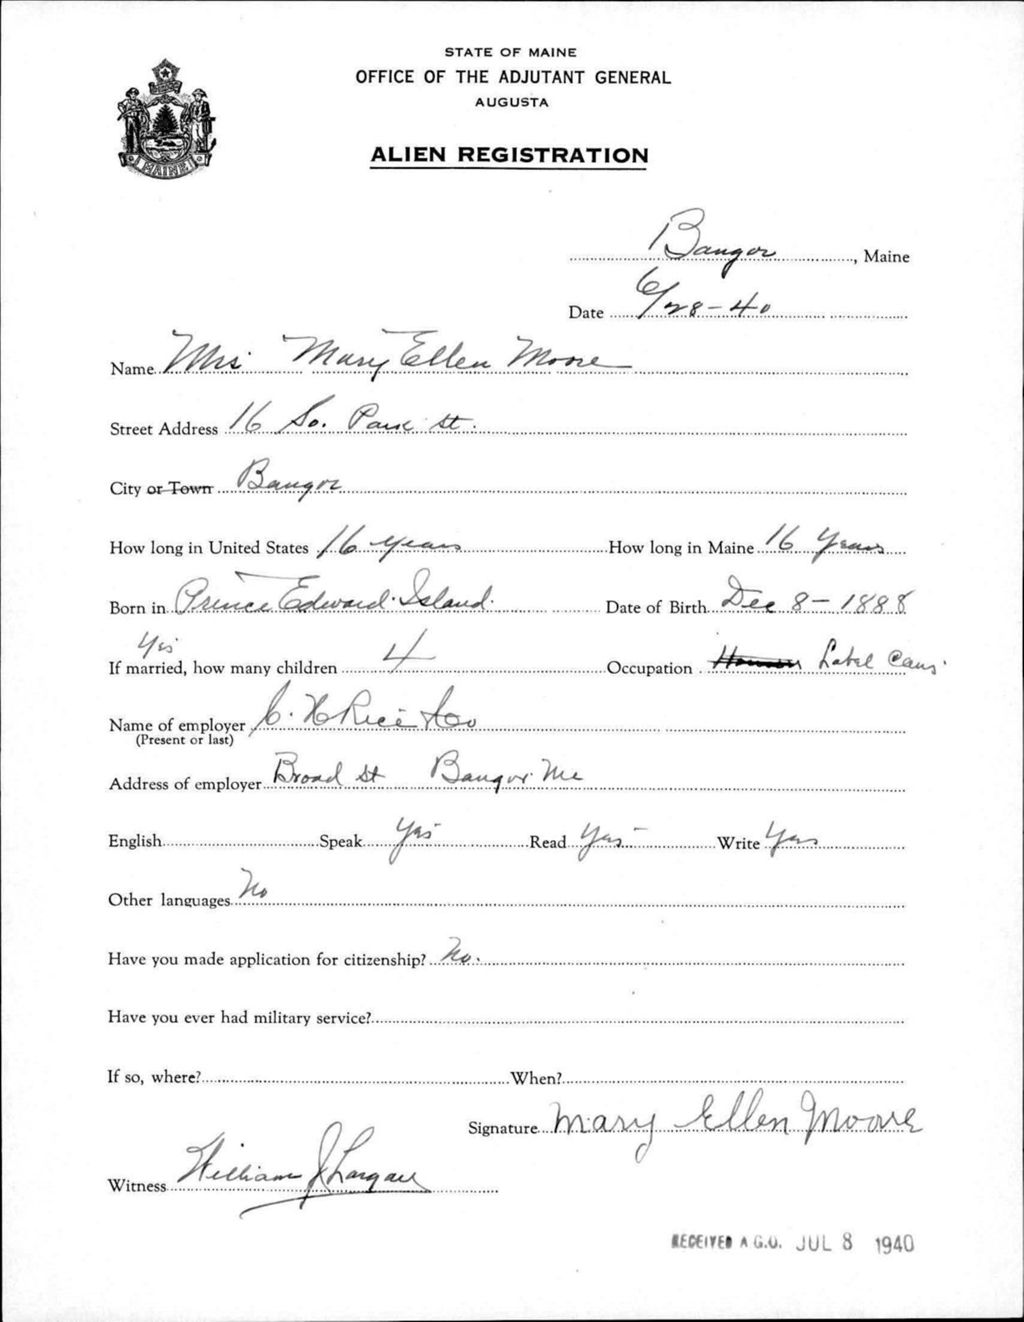 STATE OF MAINE
OFFICE OF THE ADJUTANT GENERAL
AUGUSTA
ALIEN REGISTRATION
MAINE
Bangor, Maine
Date 6/28-40
Name Mrs Mary Ellen Moore
Street Address 16 So. Park St.
City or Town Bangor
How long in United States 16 years How long in Maine 16 Years
Born in Prince Edward Island Date of Birth Dec 8-1888
Yes
If married, how many children 4 Occupation Label Cans
Name of employer C. H Rice & Co
(Present or last)
Address of employer Broad St Bangor Me
English Speak Yes Read Yes Write Yes
Other languages No
Have you made application for citizenship? No.
Have you ever had military service?
If so, where? When?
Signature Mary Ellen Moore
Witness William J
RECEIVED A.G.O. JUL 8 1940